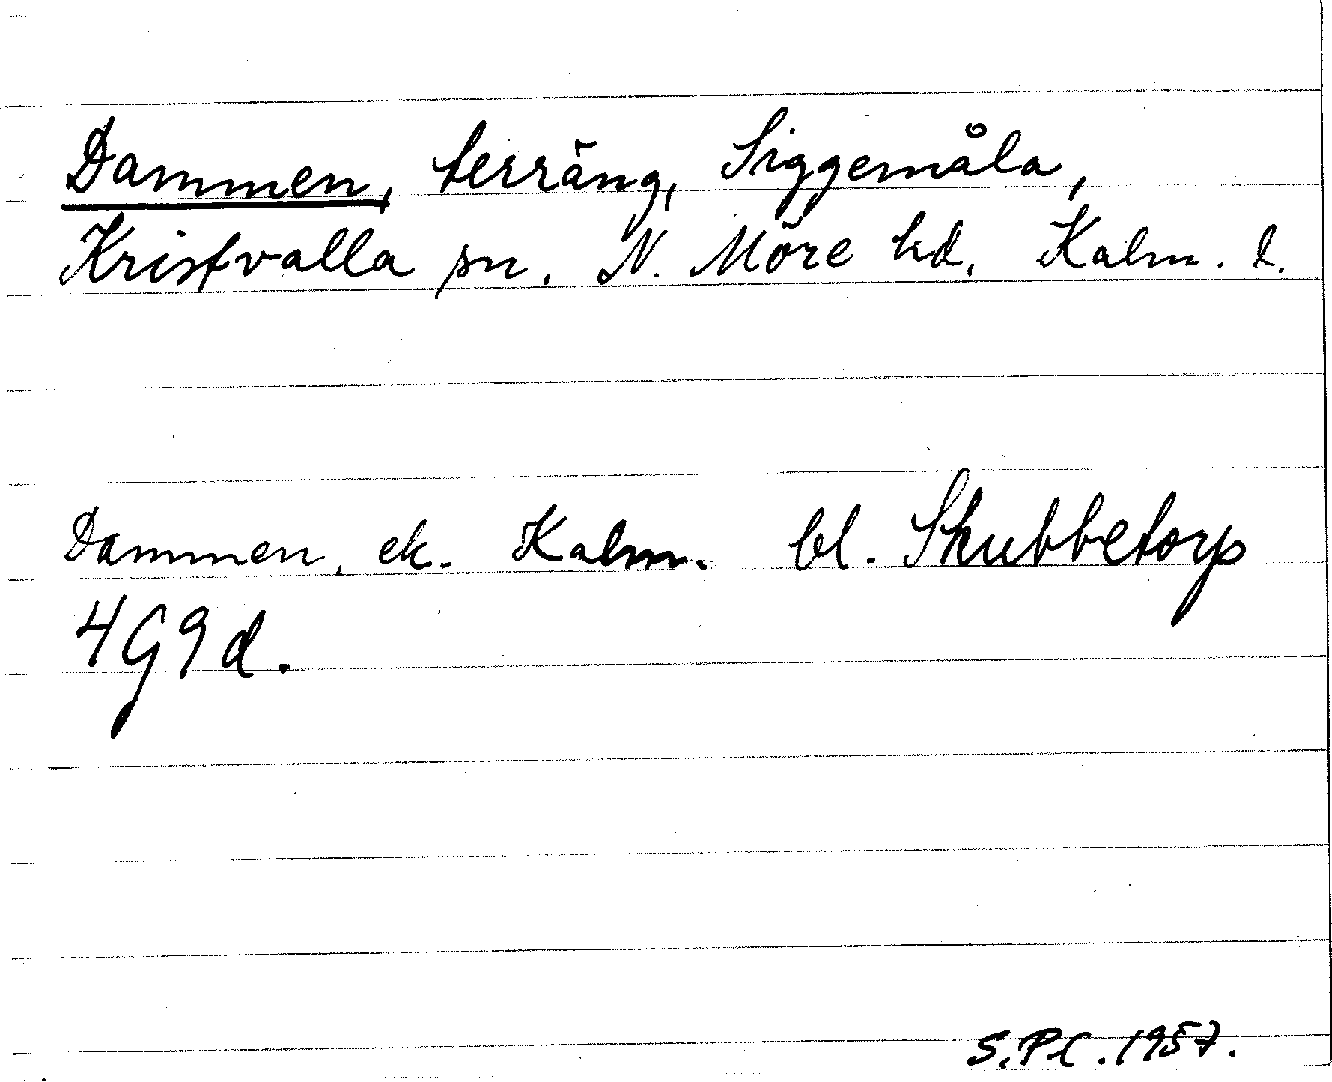 Dammen, terräng, Siggemåla,
Kristvalla sn. N. Möre hd. Kalm. l.
Dammen, ek. Kalm. bl. Skubbetorp
4G9d.
S.P.C. 1957.